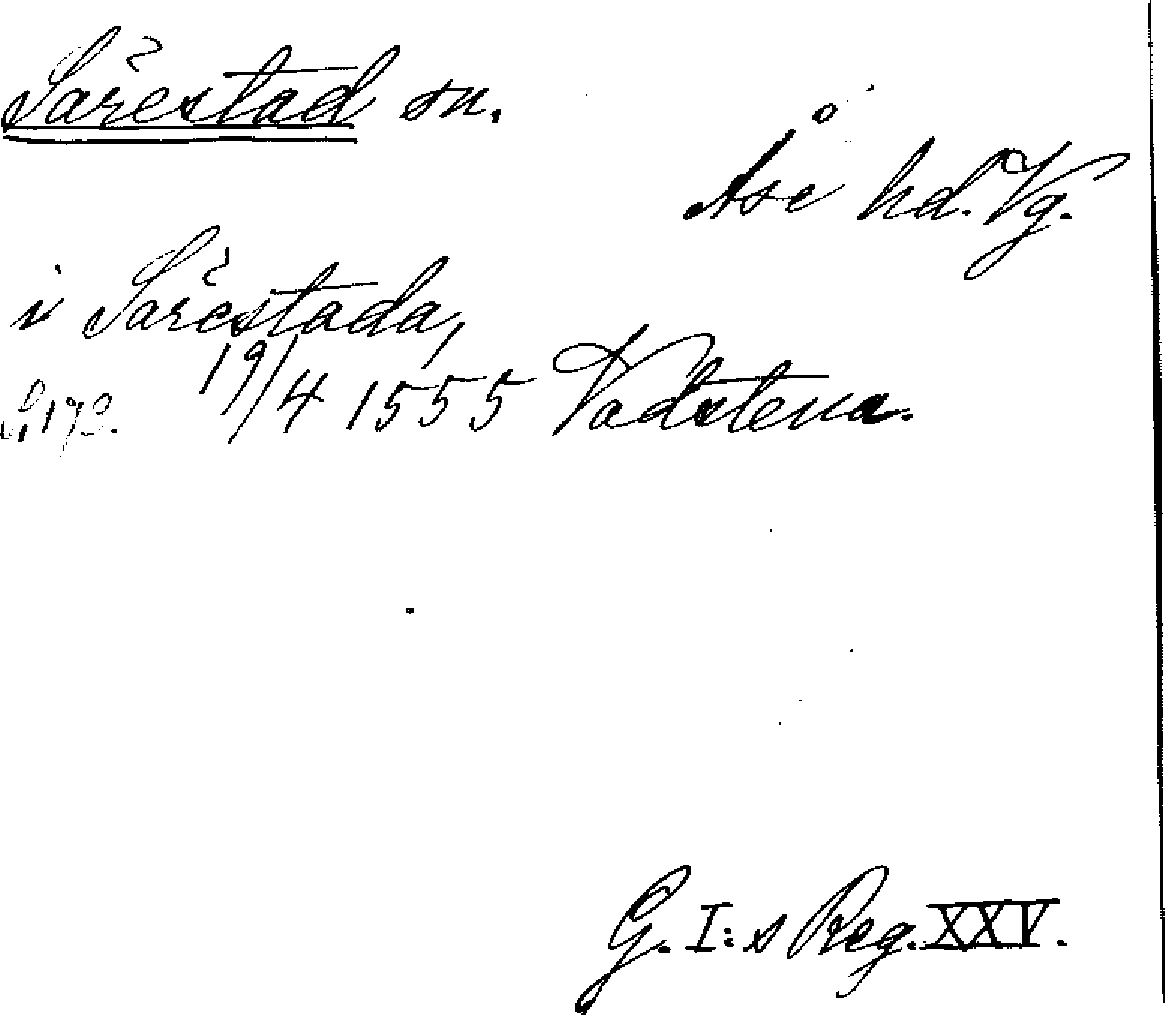 Särestad sn.
Åse hd. Vg.
i Särestada,
19/4 1555 Vadstena.
G. I:s Reg. XXV.